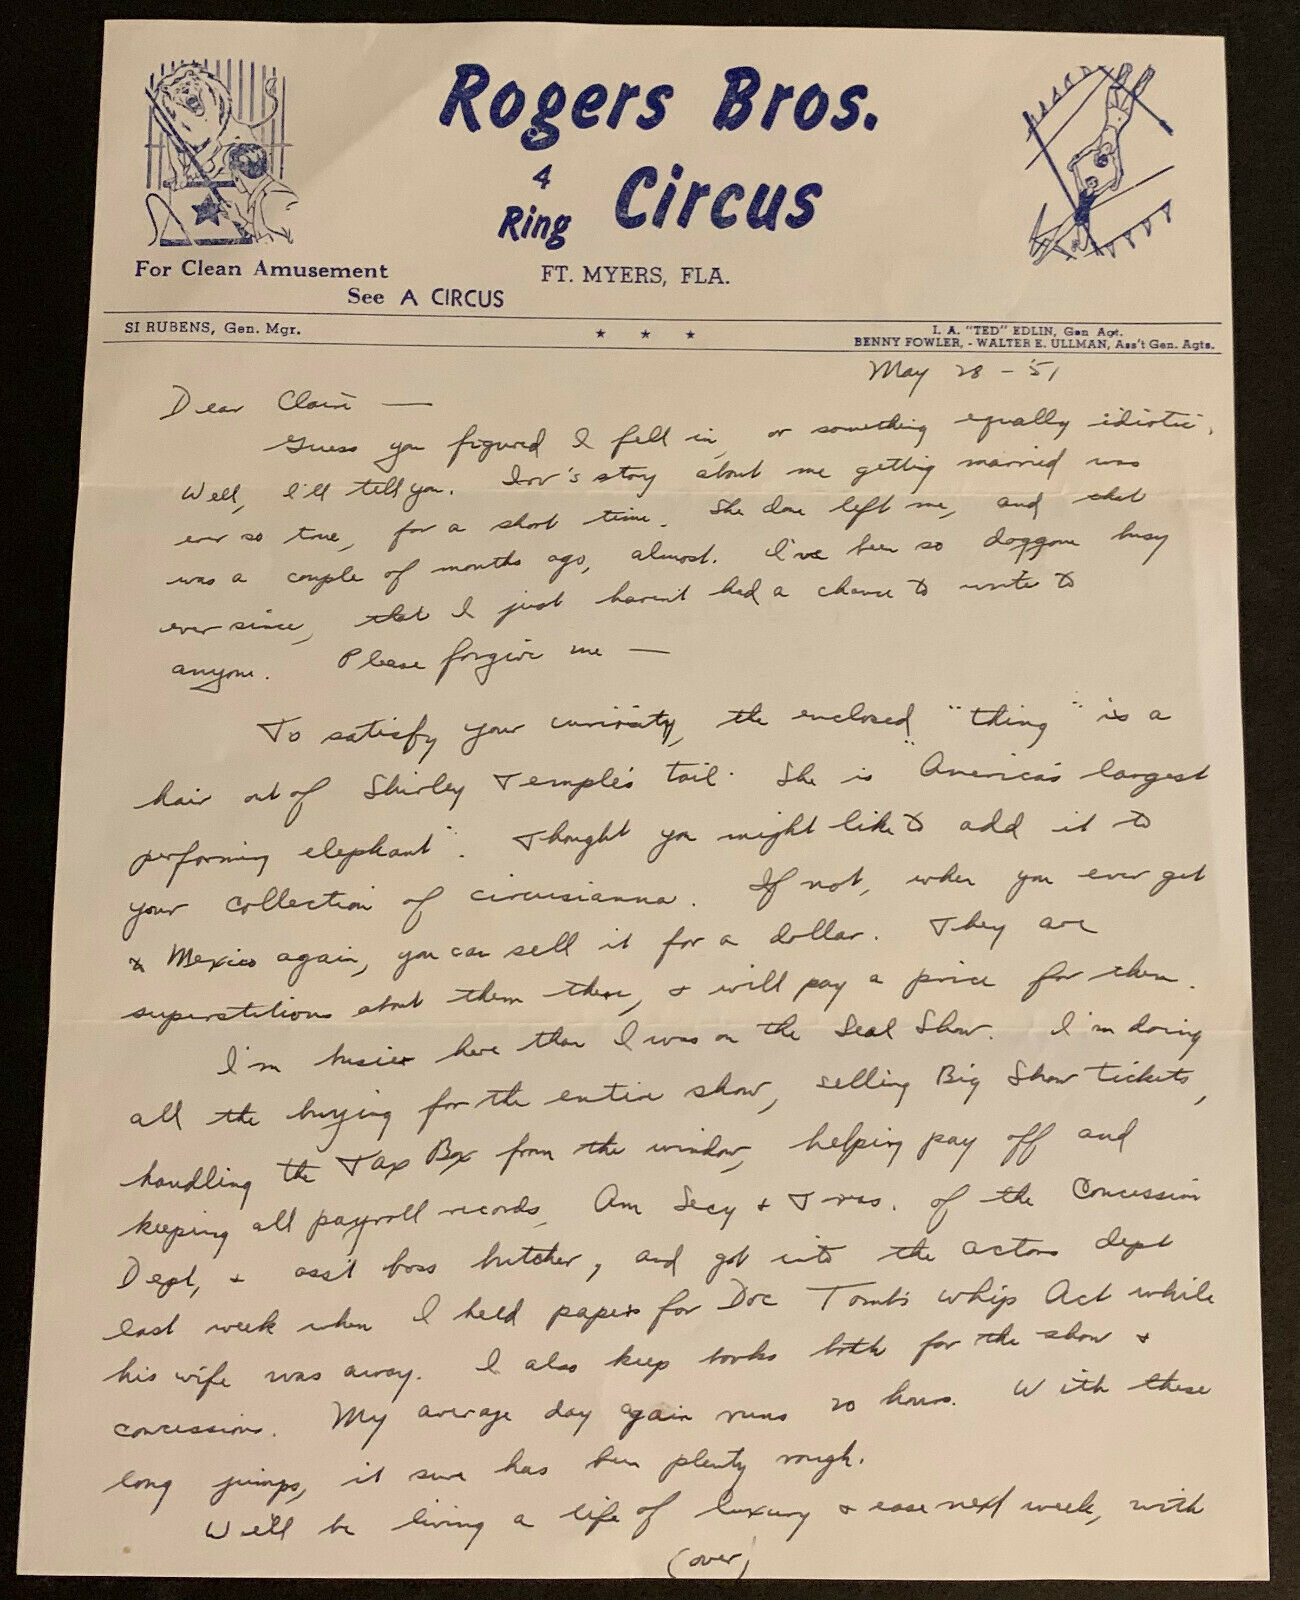 Rogers Bros.
4
Ring Circus
For Clean Amusement
See A CIRCUS
FT. MYERS, FLA.
SI RUBENS, Gen. Mgr.
★ ★ ★
I. A. "TED" EDLIN, Gen Agt.
BENNY FOWLER, - WALTER E. ULLMAN, Ass't Gen. Agts.
May 28 - '51
Dear Claire —
Guess you figured I fell in, or something equally idiotic.
Well, I'll tell you. Irv's story about me getting married was
ever so true, for a short time. She done left me, and that
was a couple of months ago, almost. I've been so doggone busy
ever since, that I just haven't had a chance to write to
anyone. Please forgive me —
To satisfy your curiosity, the enclosed "thing" is a
hair out of Shirley Temple's tail. She is "America's largest
performing elephant". Thought you might like to add it to
your collection of circusianna. If not, when you ever get
to Mexico again, you can sell it for a dollar. They are
superstitious about them there, & will pay a price for them.
I'm busier here than I was on the Seal Show. I'm doing
all the buying for the entire show, selling Big Show tickets,
handling the Tax Box from the window, helping pay off and
keeping all payroll records, Am Secy & Tres. of the Concession
Dept, & ass't boss butcher, and got into the actors dept
last week when I held papers for Doc Tomb's Whip Act while
his wife was away. I also keep books both for the show &
concessions. My average day again runs 20 hours. With these
long jumps, it sure has been plenty rough.
We'll be living a life of luxury & ease next week, with
(over)